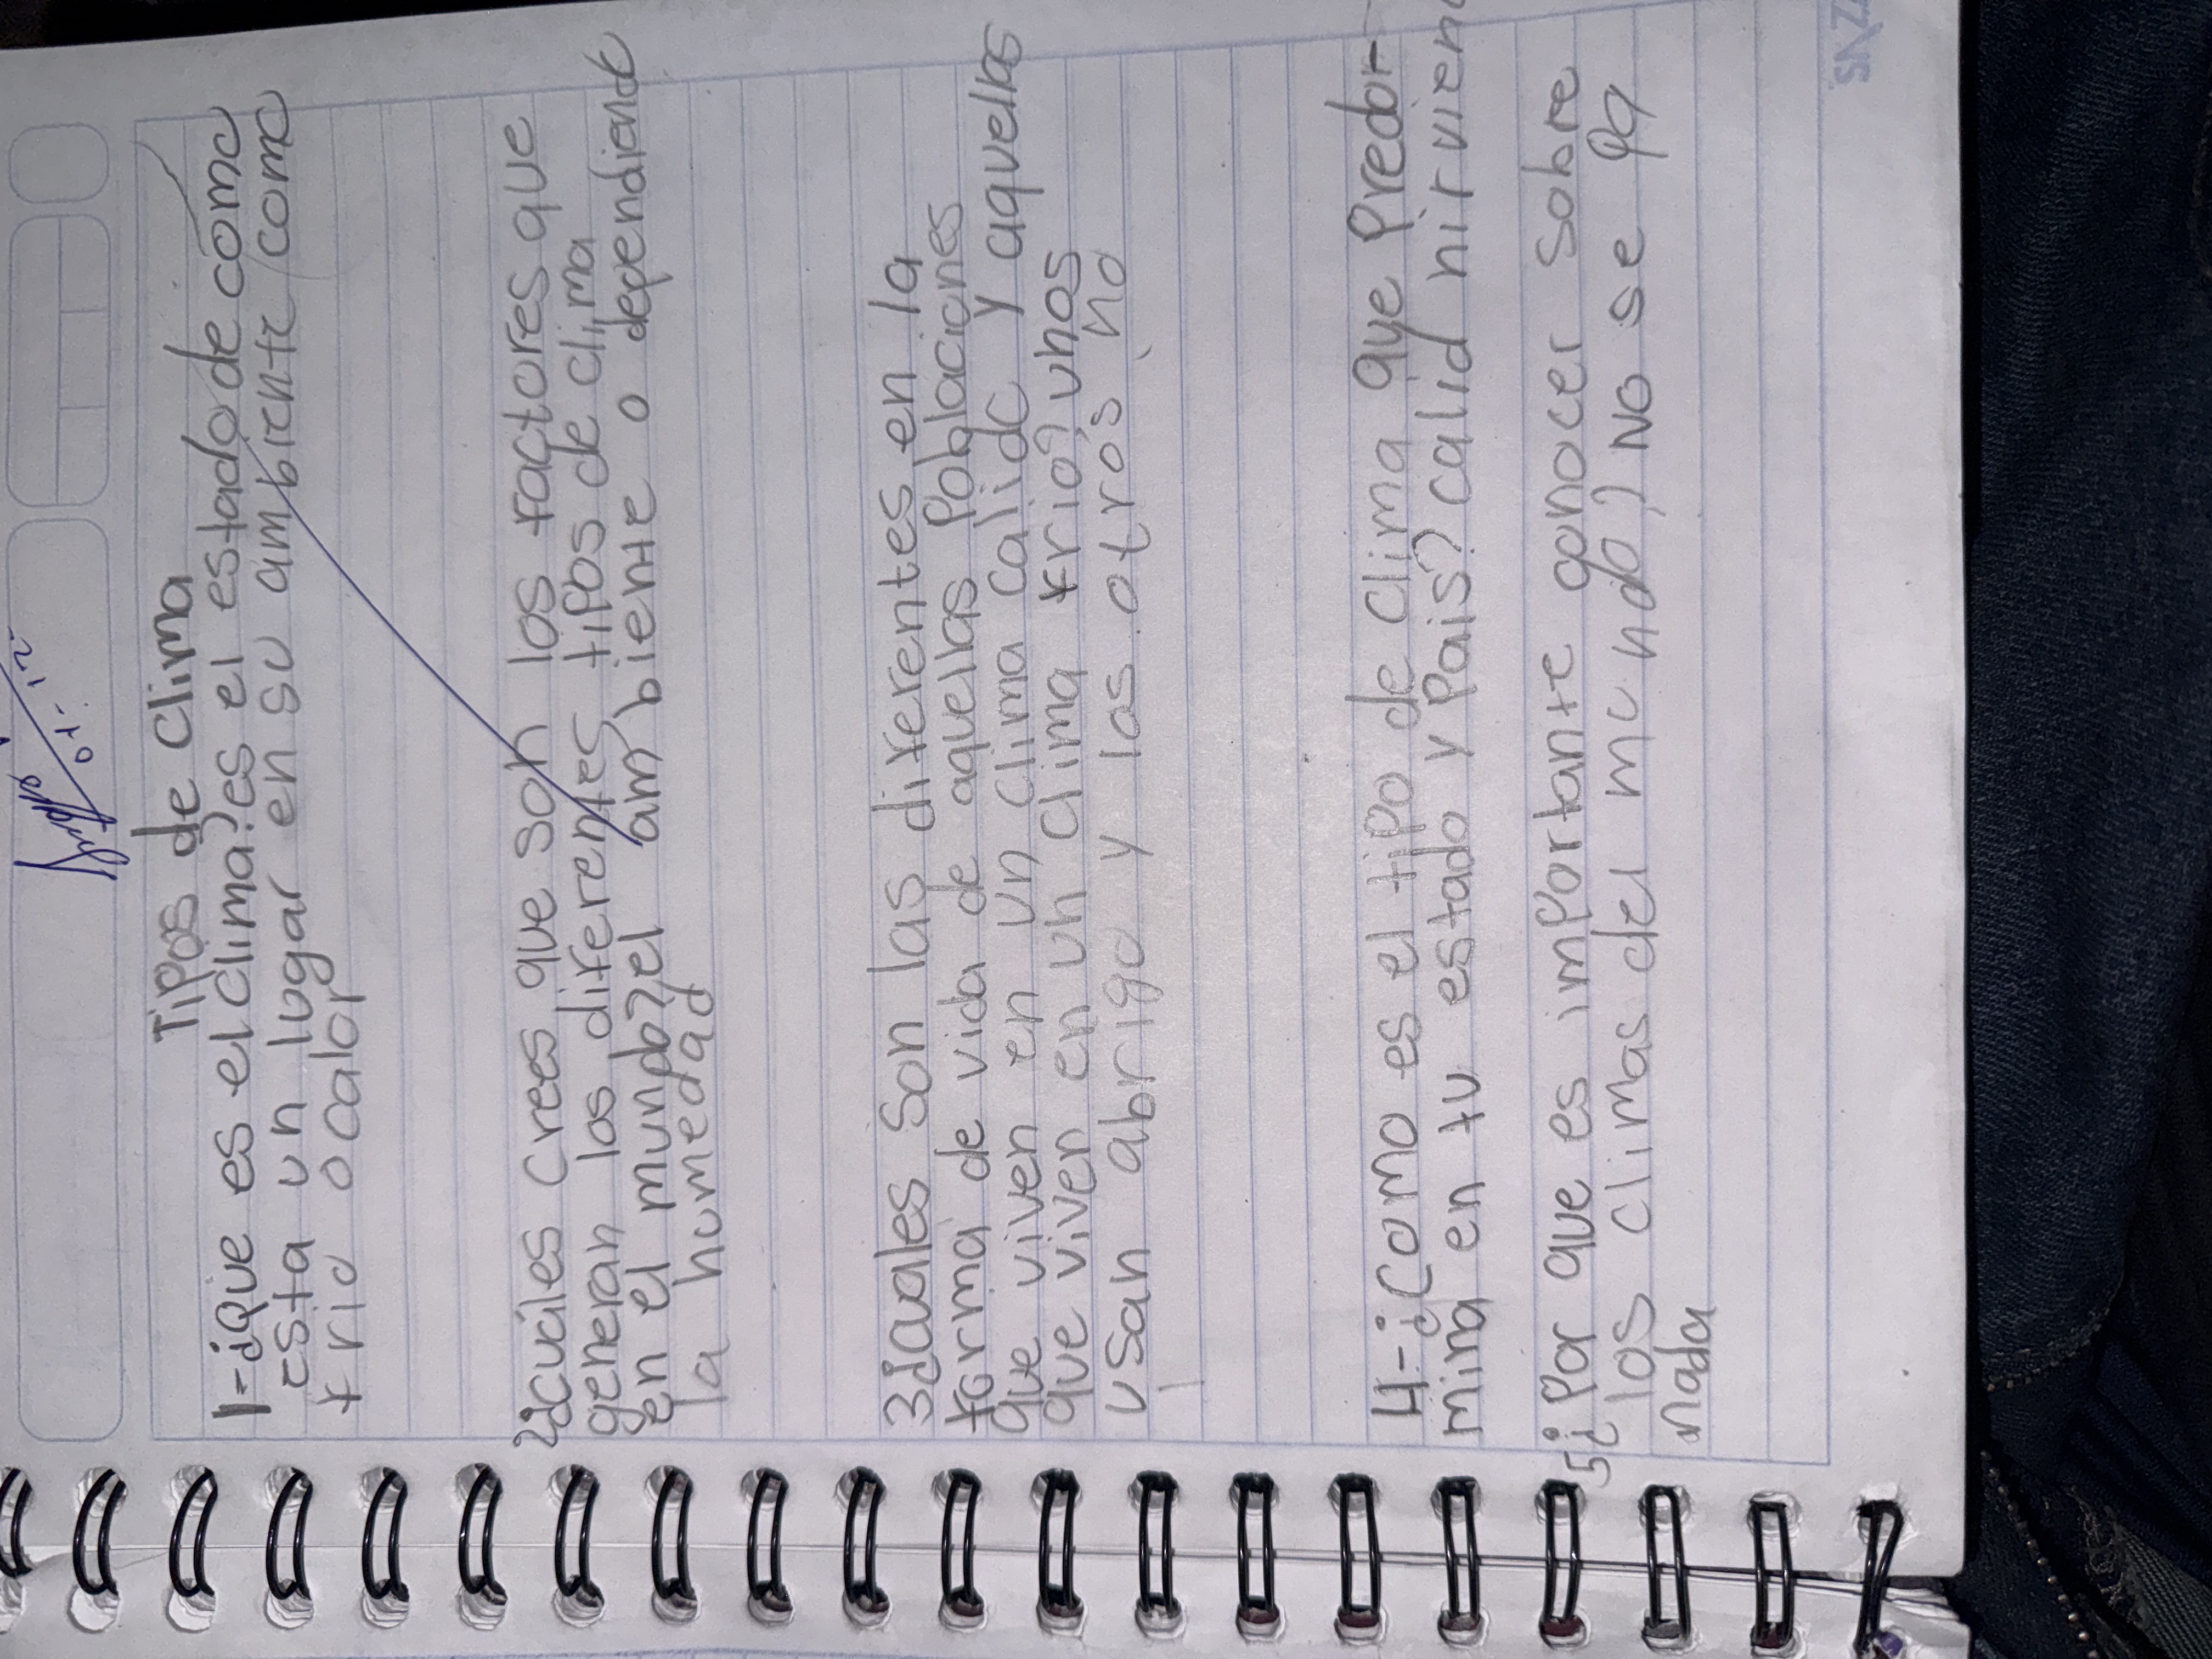 Tipos de Clima
1-¿que es el clima? es el estado de como
esta un lugar en su ambiente como
frio o calor
2¿cuáles crees que son los factores que
generan los diferentes tipos de clima
en el mundo? el ambiente o dependiendo
la humedad
3¿cuales son las diferentes en la
forma de vida de aquellas Poblaciones
que viven en un clima calido y aquellas
que viven en un clima frio? unos
usan abrigo y los otros no
4-¿Como es el tipo de clima que Predor-
mina en tu estado y Pais? calid
5¿Por que es importante conocer sobre
¿los climas del mundo? No se pa
nada